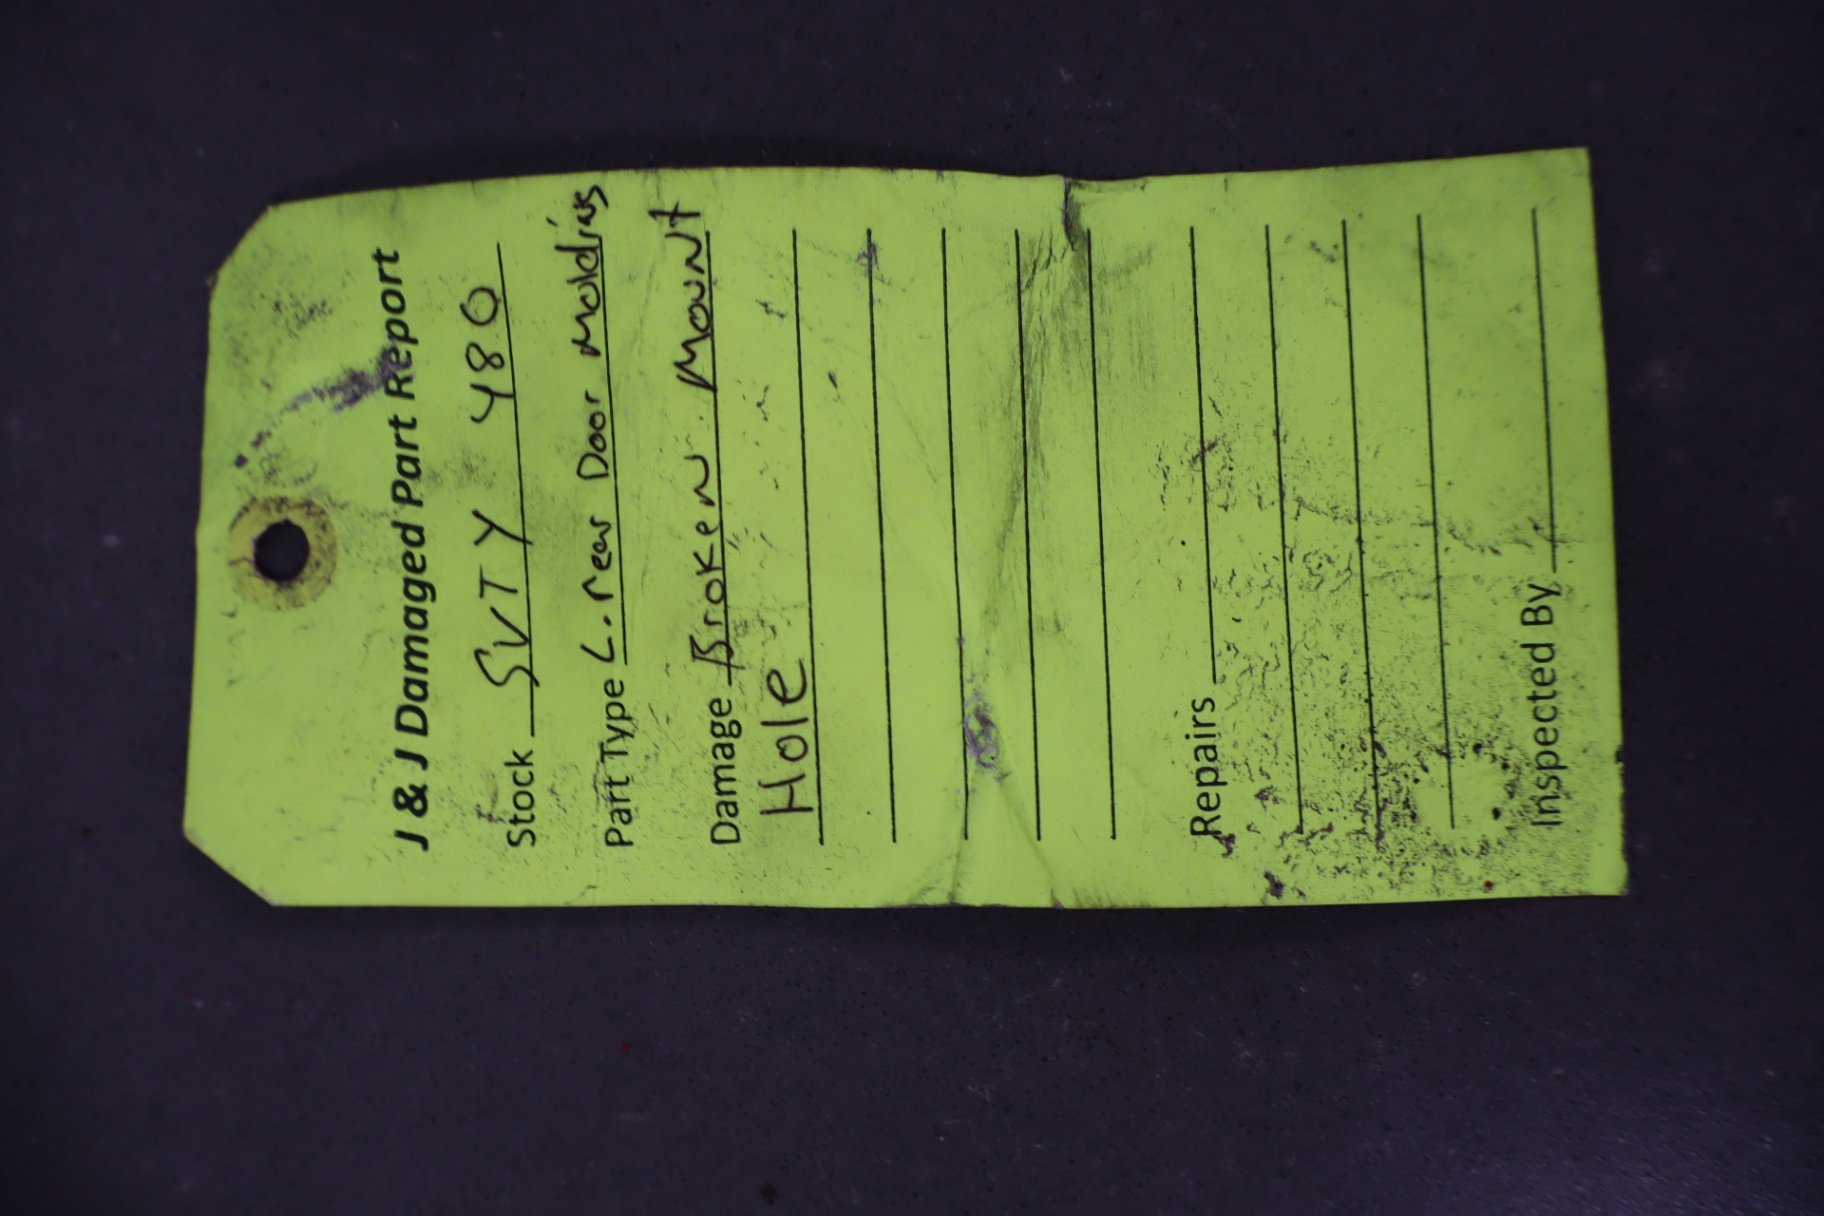 J & J Damaged Part Report
Stock SVTY 480
Part Type L. rear Door Molding
Damage Broken Mount
Hole
Repairs
Inspected By